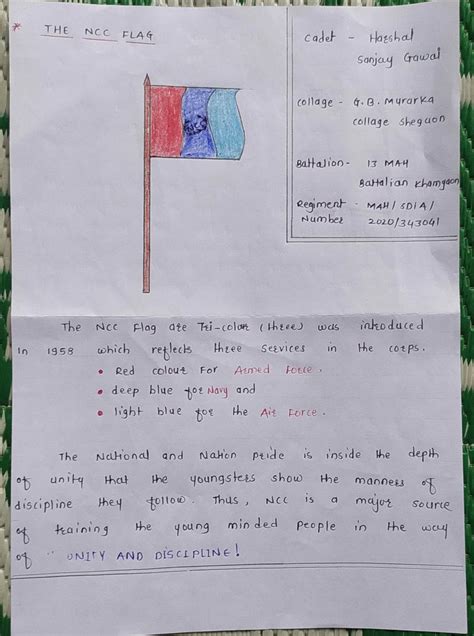 * THE NCC FLAG
Cadet - Harshal
Sanjay Gawai
Collage - G. B. Murarka
Collage Shegaon
Battalion - 13 MAH
Battalian Khamgaon
Regiment - MAH/SDIA/
Number 2020/343041
NCC
The NCC Flag are Tri-colour (three) was introduced
In 1958 which reflects three services in the corps.
• Red colour For Armed Force.
• deep blue for Navy and
• light blue for the Air Force.
The National and Nation pride is inside the depth
of unity that the youngsters show the manners of
discipline they follow. Thus, NCC is a major source
of training the young minded people in the way
of " UNITY AND DISCIPLINE!